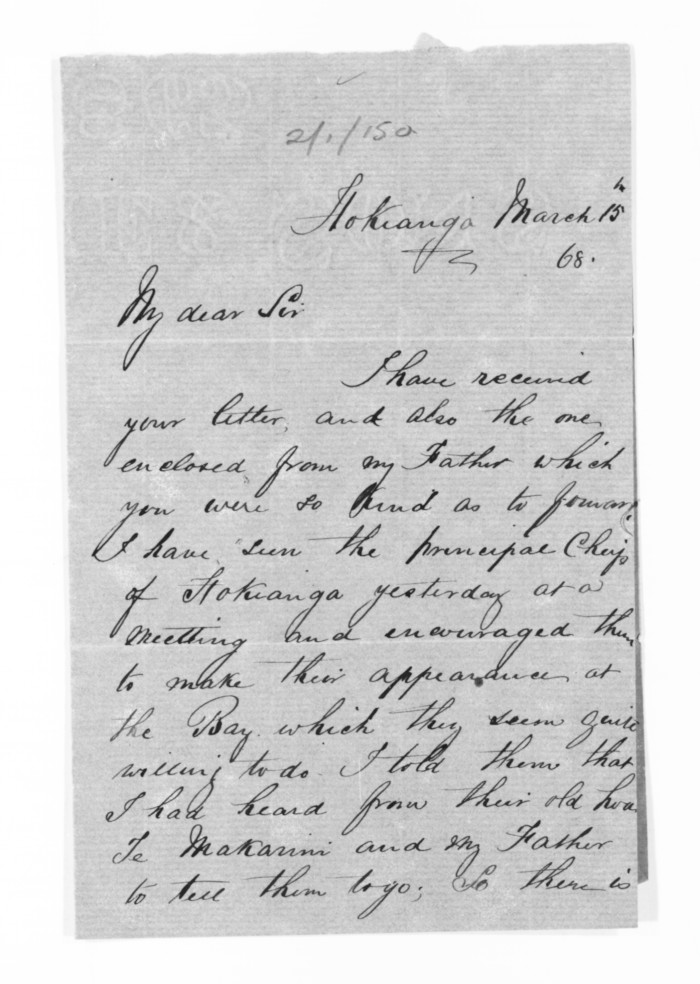 2/1/150
Hokianga March 15th
68.
My dear Sir
I have received
your letter, and also the one
enclosed from my Father which
you were so kind as to forward
I have seen the principal Cheifs
of Hokianga yesterday at a
meetting and encouraged them
to make their appearance at
the Bay which they seem quite
willing to do. I told them that
I had heard from their old hoa
Te Makarini and my Father
to tell them to go; So there is